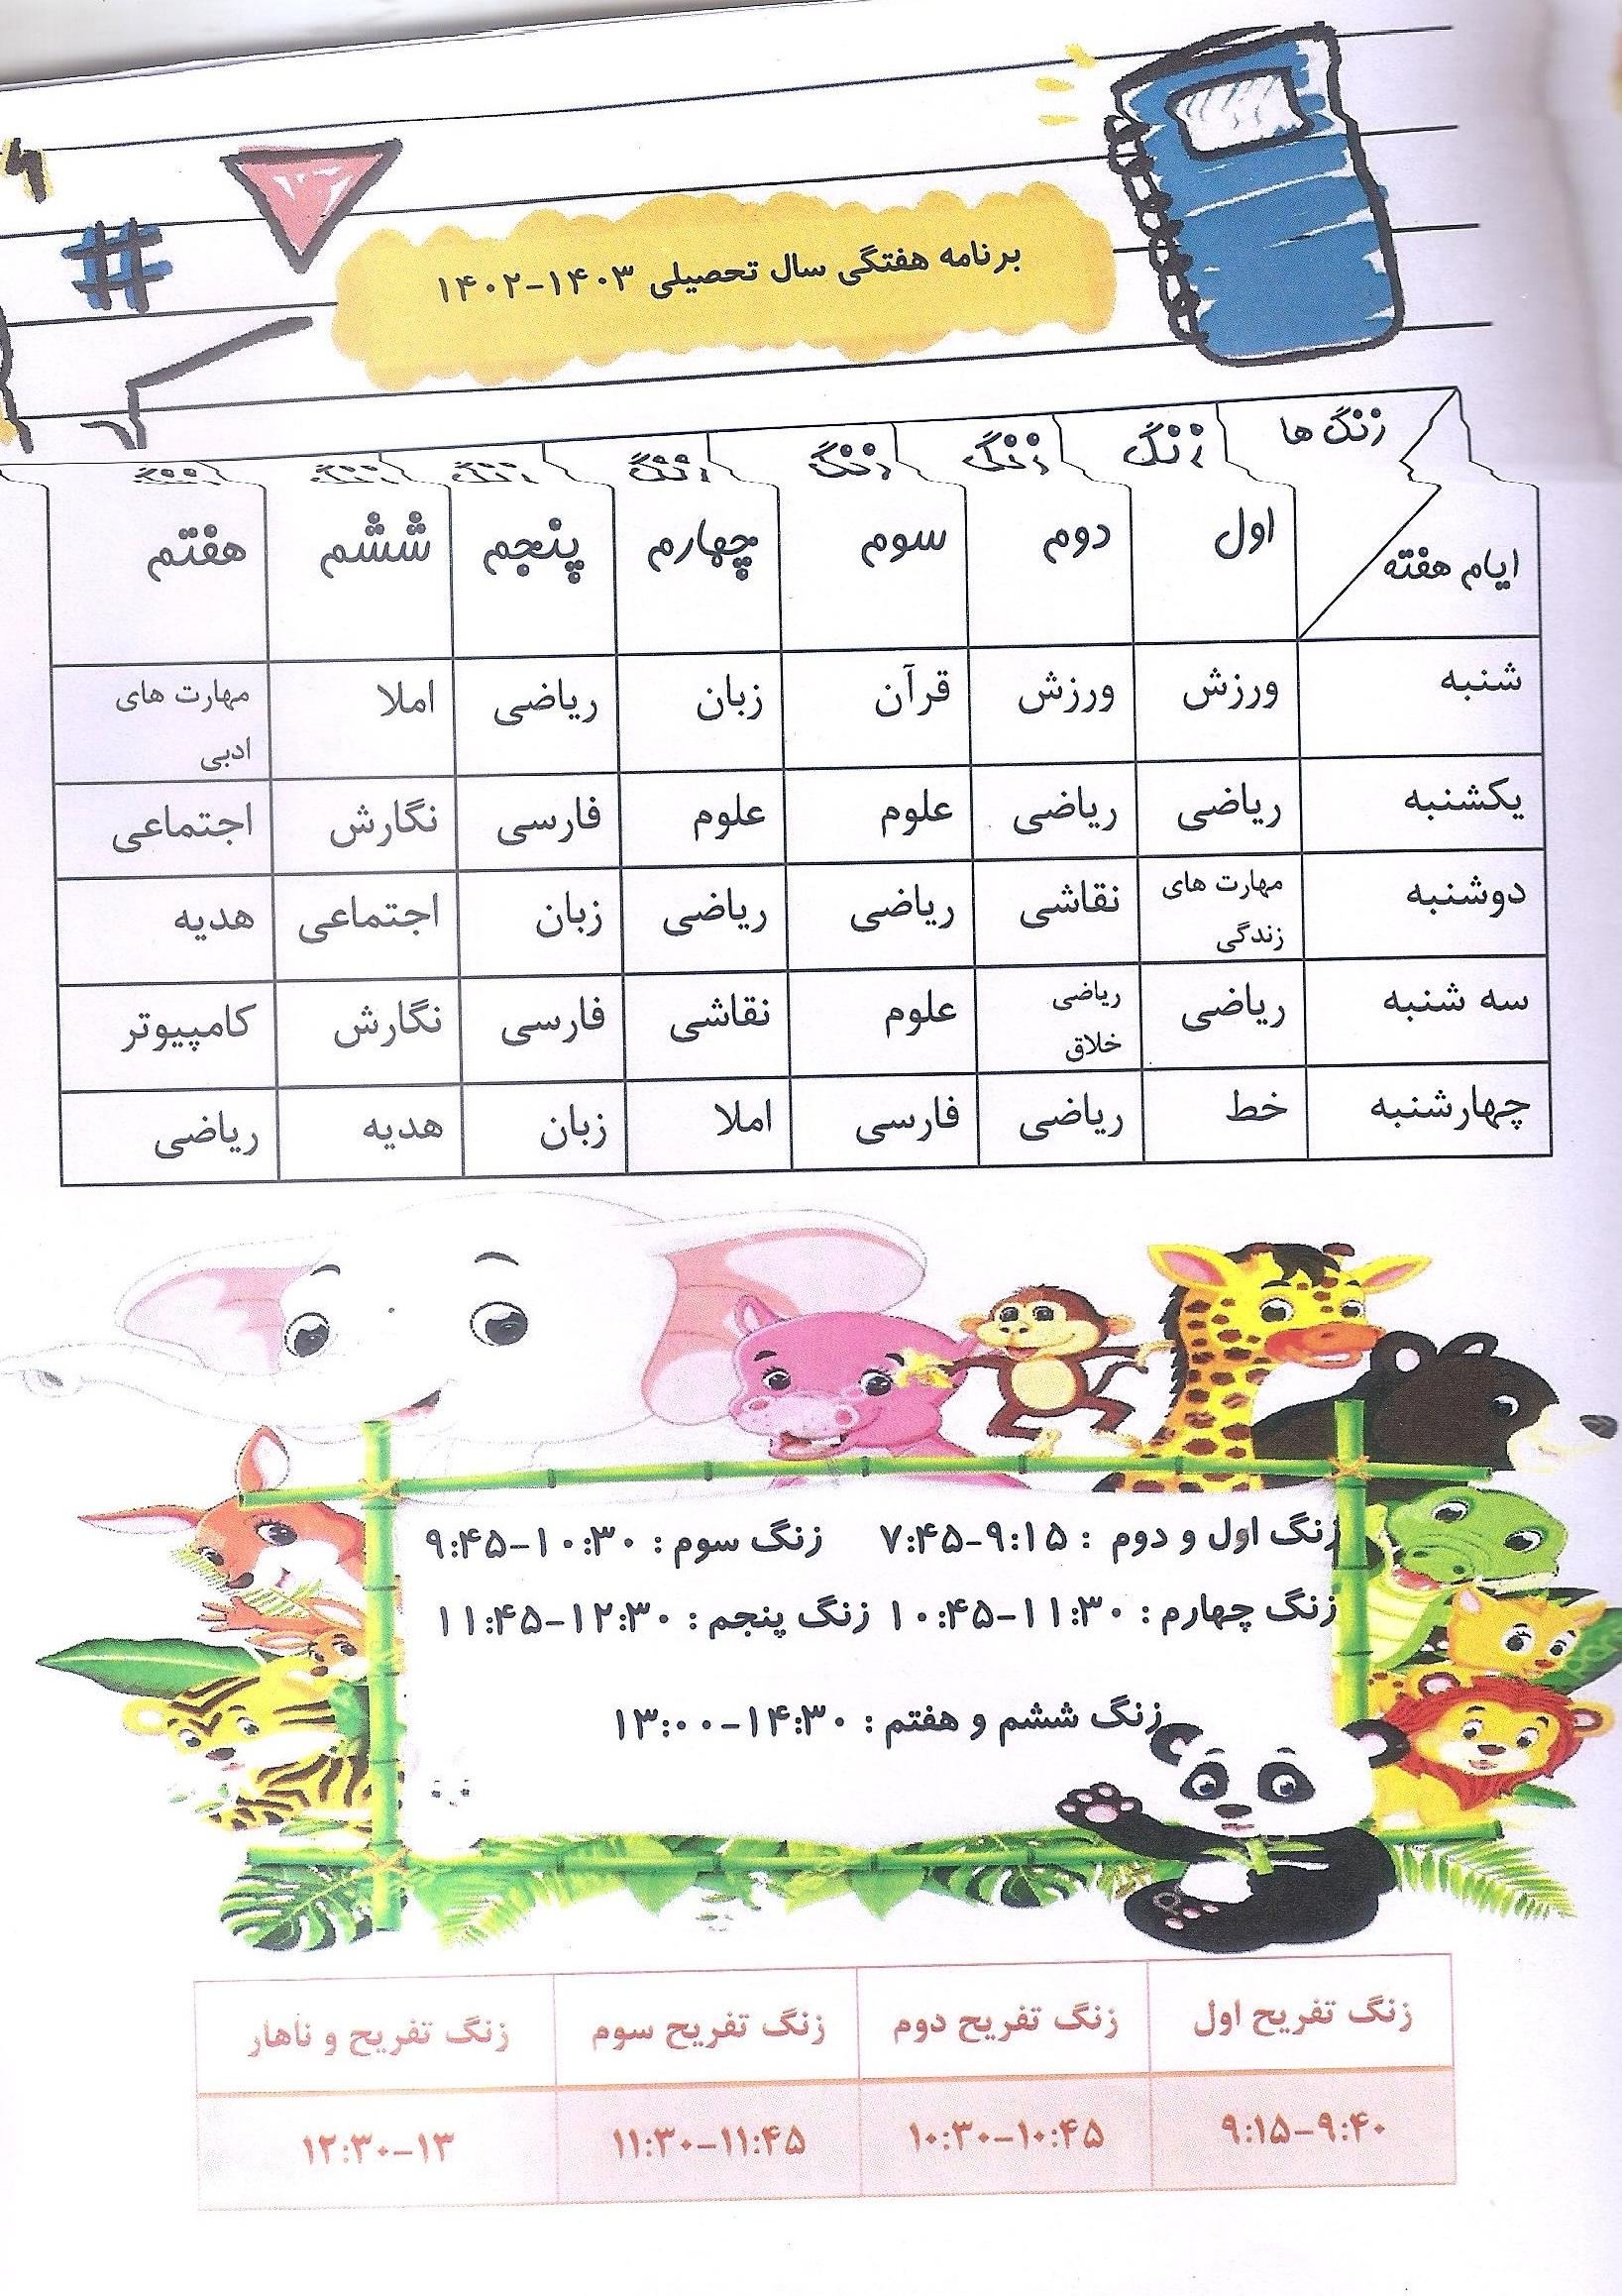 برنامه هفتگی سال تحصیلی ۱۴۰۳-۱۴۰۲
زنگ ها زنگ زنگ زنگ زنگ زنگ زنگ زنگ
ایام هفته اول دوم سوم چهارم پنجم ششم هفتم
شنبه ورزش ورزش قرآن زبان ریاضی املا مهارت های
ادبی
یکشنبه ریاضی ریاضی علوم علوم فارسی نگارش اجتماعی
دوشنبه مهارت های نقاشی ریاضی ریاضی زبان اجتماعی هدیه
زندگی
سه شنبه ریاضی ریاضی علوم نقاشی فارسی نگارش کامپیوتر
خلاق
چهارشنبه خط ریاضی فارسی املا زبان هدیه ریاضی
زنگ اول و دوم : ۹:۱۵-۷:۴۵ زنگ سوم : ۱۰:۳۰-۹:۴۵
زنگ چهارم : ۱۱:۳۰-۱۰:۴۵ زنگ پنجم : ۱۲:۳۰-۱۱:۴۵
زنگ ششم و هفتم : ۱۴:۳۰-۱۳:۰۰
زنگ تفریح اول زنگ تفریح دوم زنگ تفریح سوم زنگ تفریح و ناهار
۹:۱۵-۹:۴۰ ۱۰:۳۰-۱۰:۴۵ ۱۱:۳۰-۱۱:۴۵ ۱۲:۳۰-۱۳